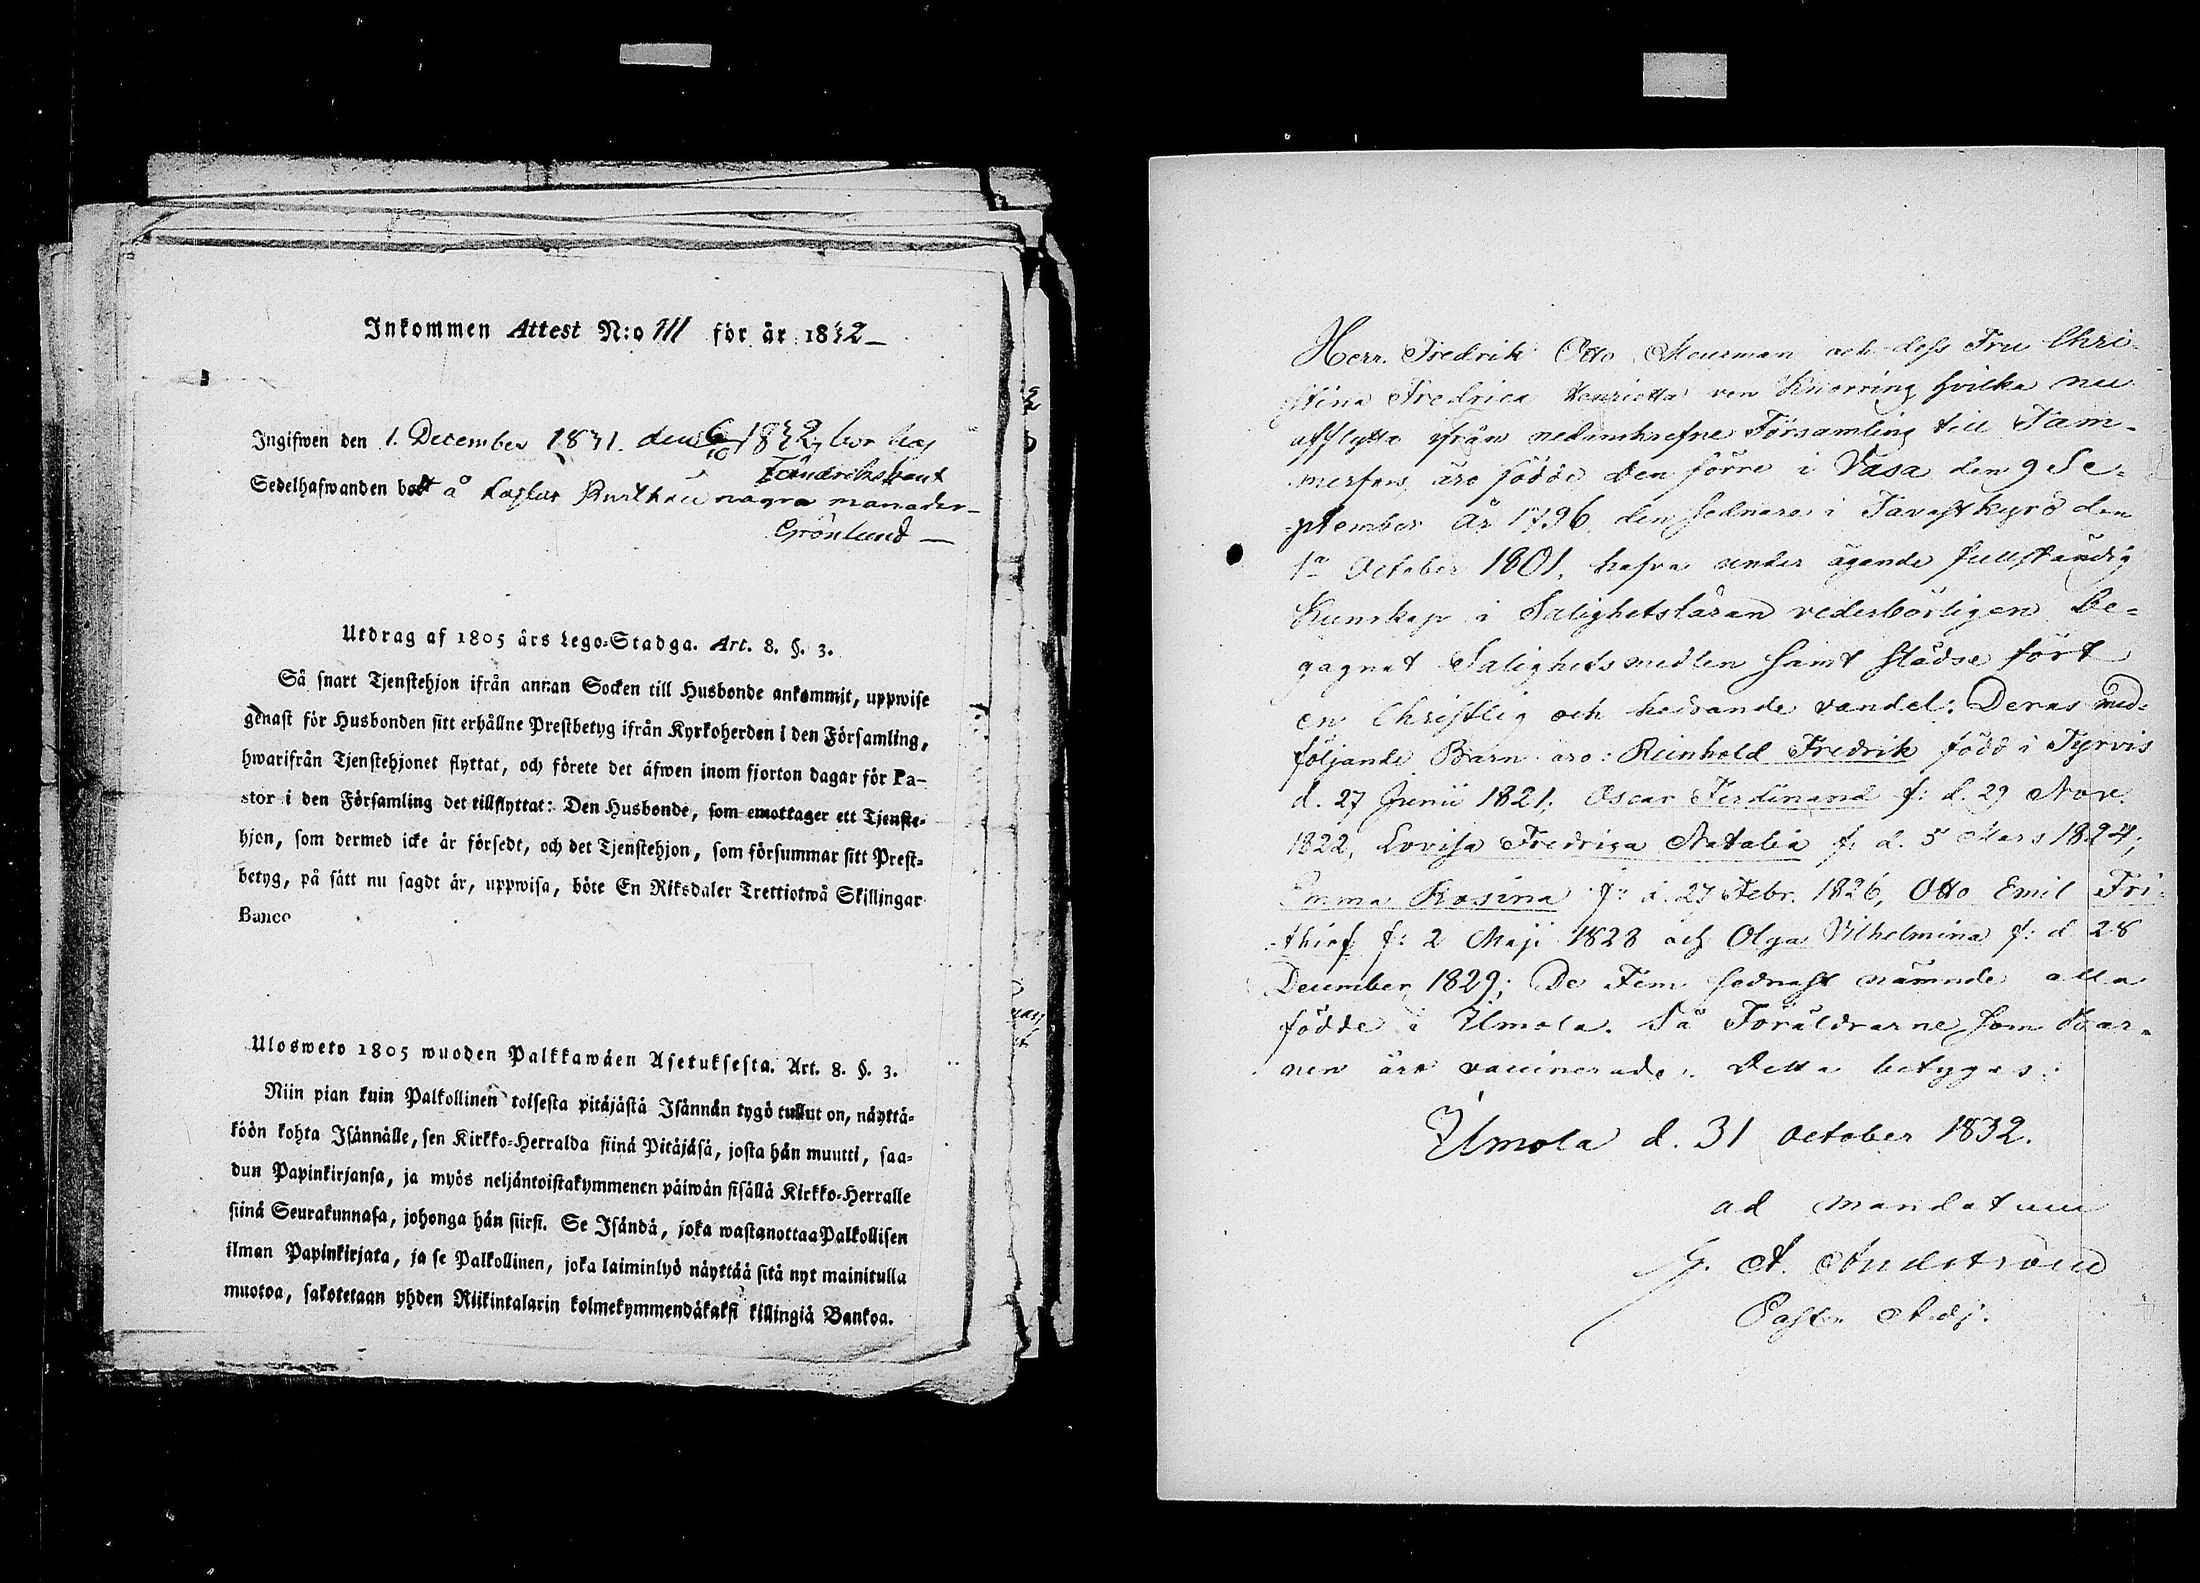 Inkommen Attest N:o 111 för år 1832
Ingifwen den 1. December 1831. den 6/10 1832, bor hos
Fändrikskans
Sedelhafwanden bott å några månader
Grönlund
Utdrag af 1805 års Lego-Stadga. Art. 8. §. 3.
Så snart Tjenstehjon ifrån annan Socken till Husbonde ankommit, uppwise
genast för Husbonden sitt erhållne Prestbetyg ifrån Kyrkoherden i den Församling,
hwarifrån Tjenstehjonet flyttat, och förete det äfwen inom fjorton dagar för Pa-
stor i den Församling det tillflyttat: Den Husbonde, som emottager ett Tjenste-
hjon, som dermed icke är försedt, och det Tjenstehjon, som försummar sitt Prest-
betyg, på sätt nu sagdt är, uppwisa, böte En Riksdaler Trettiotwå Skillingar
Banco
Ulosweto 1805 wuoden Palkkawäen Asetuksesta. Art. 8. §. 3.
Niin pian kuin Palkollinen toisesta pitäjästä Isännän tygö tullut on, näyttä-
köön kohta Isännälle, sen Kirkko-Herralda siinä Pitäjäsä, josta hän muutti, saa-
dun Papinkirjansa, ja myös neljäntoistakymmenen päiwän sisällä Kirkko-Herralle
siinä Seurakunnasa, johonga hän siirsi. Se Isändä, joka wastanottaa Palkollisen
ilman Papinkirjata, ja se Palkollinen, joka laiminlyö näyttää sitä nyt mainitulla
muotoa, sakotetaan yhden Riikintalarin kolmekymmendäkaksi killingiä Bankoa.
Herr Fredrik Otto Meurman och dess Fru Chri-
stina Fredrica Henrietta von Knorring hvilka nu
afflytta ifrån nedanskrefne Församling till Tam-
merfors, äro födde den förre i Vasa den 9 Se-
ptember År 1796, den sednare i Tavastkyrö den
1a October 1801. hafva under ägande fullständig
Kunskap i Salighetsläran vederbörligen be-
gagnat Salighetsmedlen samt städse fört
en Christlig och hedrande vandel: Deras med-
följande Barn äro: Reinhold Fredrik född i Tyrvis
d. 27 Junii 1821; Oscar Ferdinand f: d. 29 Nov.
1822, Lovisa Fredrica Natalia f: d. 5 Mars 1824;
Emma Rosina f: d. 27 Febr. 1826, Otto Emil Fri-
thiof f: 2 Maji 1828 och Olga Vilhelmina f: d 28
December 1829; De Fem sednast nämnde alla
födde i Ilmola. Så Föräldrarne som Bar-
nen äro vaccinerade. Detta betygas:
Ilmola d. 31 October 1832.
ad mandatum
Pastor Adj.